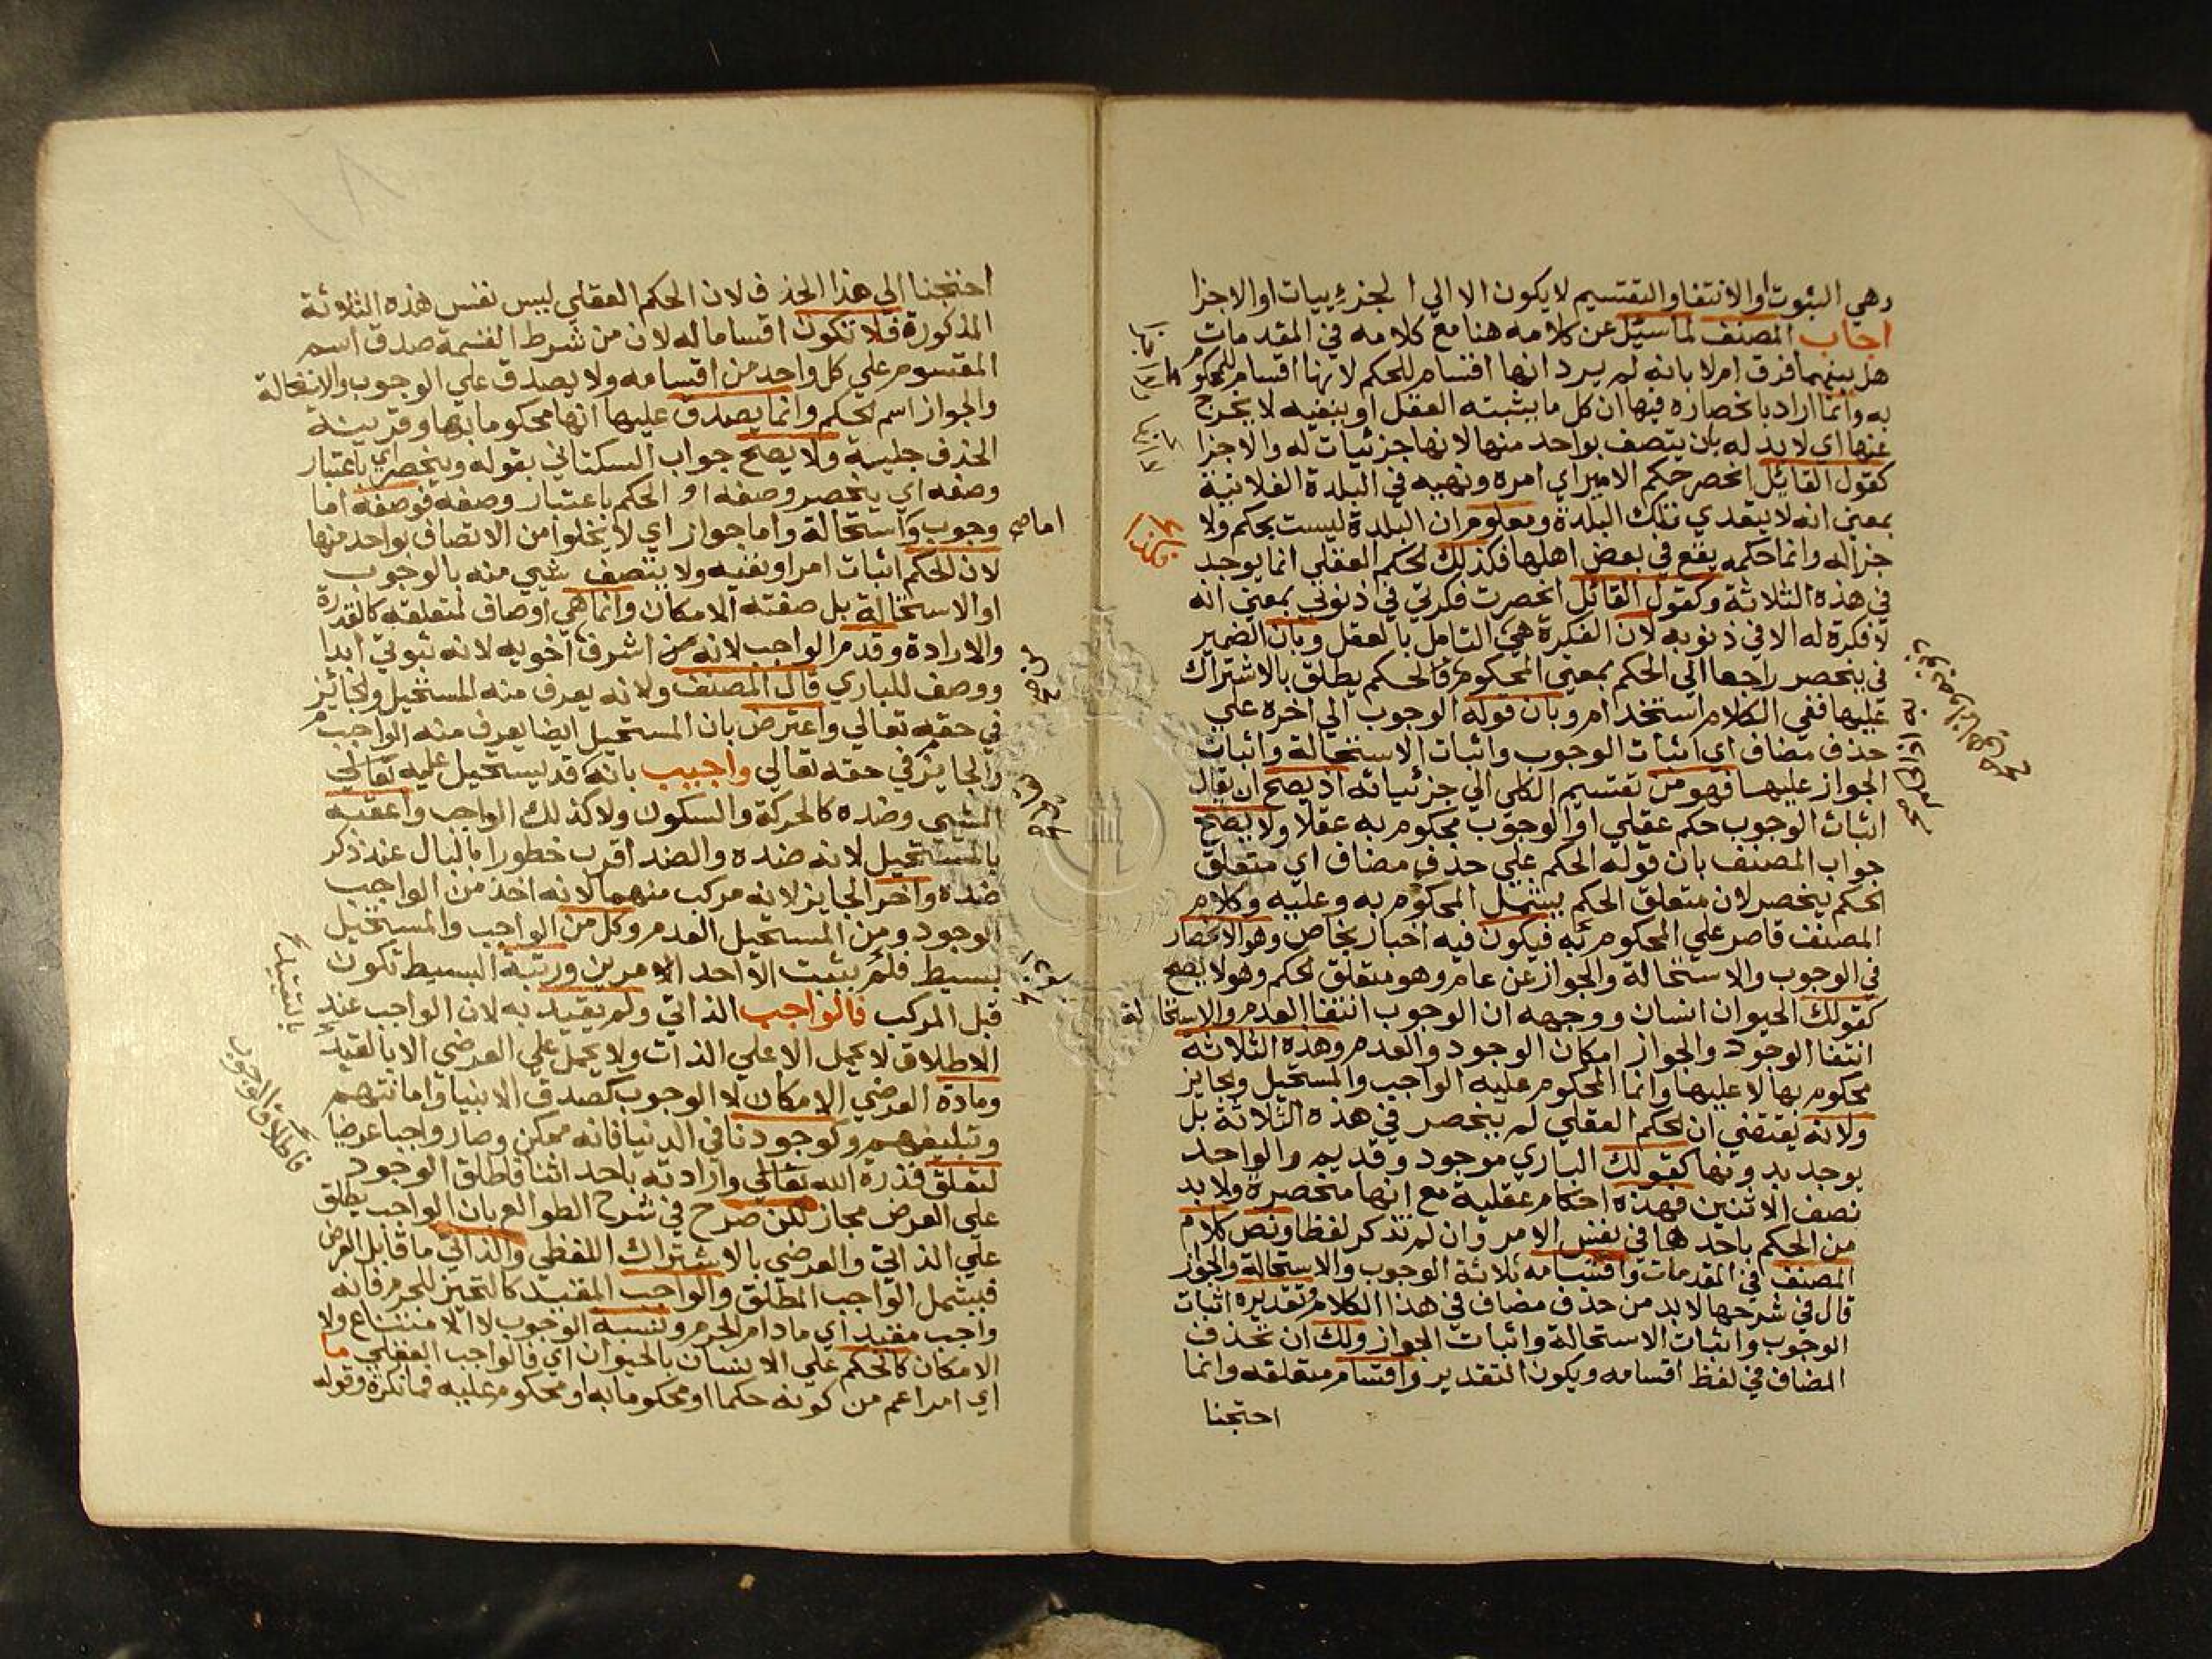 وهي الثبوت أو الانتفا والتقسيم لا يكون الا الي الجزييات او الاجزا
اجاب المصنف لما سئل عن كلامه هنا مع كلامه في المقدمات
هل بينهما فرق ام لا بانه لم يرد انها اقسام للحكم لانها اقسام للمحكوم
به وانما اراد بانحصاره فيها ان كل ما يثبته العقل او ينفيه لا يخرج
عنها اي لا بد له بان يتصف بواحد منها لا انها جزئيات له والاجزا
كقول القائل انحصر حكم الامير اي امره ونهيه في البلدة الفلانية
بمعني انه لا يتعدي تلك البلدة ومعلوم ان البلدة ليست بحكم ولا
جزا له وانما حكمه يقع في بعض اهلها فكذلك الحكم العقلي انما يوجد
في هذه الثلاثة وكقول القائل انحصرت فكرتي في ذنوبي بمعني انه
لا فكرة له الا في ذنوبه لان الفكرة هي التامل بالعقل وبان الضمير
في ينحصر راجعا الي الحكم بمعني المحكوم فالحكم يطلق بالاشتراك
عليها ففي الكلام استخدام وبان قوله الوجوب الي اخره علي
حذف مضاف اي اثبات الوجوب واثبات الاستحالة واثبات
الجواز عليها فهو من تقسيم الكلي الي جزئياته اذ يصح ان يقال
اثبات الوجوب حكم عقلي او الوجوب محكوم به عقلا ولا يصح
جواب المصنف بان قوله الحكم علي حذف مضاف اي متعلق
الحكم ينحصر لان متعلق الحكم يشمل المحكوم به وعليه وكلام
المصنف قاصر علي المحكوم به فيكون فيه اخبار بخاص وهو الانحصار
في الوجوب والاستحالة والجواز عن عام وهو متعلق الحكم وهو لا يصح
كقولك الحيوان انسان ووجهه ان الوجوب انتفا العدم والاستحالة
انتفا الوجود والجواز امكان الوجود والعدم وهذه الثلاثة
محكوم بها لا عليها وانما المحكوم عليه الواجب والمستحيل والجايز
ولانه يقتضي ان الحكم العقلي لم ينحصر في هذه الثلاثة بل
يوجد بدونها كقولك الباري موجود وقديم والواحد
نصف الاثنين فهذه احكام عقلية مع انها منحصرة ولا بد
من الحكم باحدها في نفس الامر وان لم تذكر لفظا ونص كلام
المصنف في المقدمات واقسامه ثلاثة الوجوب والاستحالة والجواز
قال في شرحها لا بد من حذف مضاف في هذا الكلام وتقديره اثبات
الوجوب واثبات الاستحالة واثبات الجواز ولك ان تحذف
المضاف في لفظ اقسامه ويكون التقدير واقسام متعلقه وانما
احتجنا
احتجنا الي هذا الحذف لان الحكم العقلي ليس نفس هذه الثلاثة
المذكورة فلا تكون اقساما له لان من شرط القسمة صدق اسم
المقسوم علي كل واحد من اقسامه ولا يصدق علي الوجوب والاستحالة
والجواز اسم الحكم وانما يصدق عليها انها محكوما بها وقرينة
الحذف جلية ولا يصح جواب السكتاني بقوله وينحصر اي باعتبار
وصفه اي ينحصر وصفه او الحكم باعتبار وصفه فوصفه اما
وجوب واستحالة واما جواز اي لا يخلوا من الاتصاف بواحد منها
اما صح
لان الحكم اثبات امر او نفيه ولا يتصف شيي منه بالوجوب
او الاستحالة بل صفته الامكان وانما هي اوصاف لمتعلقه كالقدرة
والارادة وقدم الواجب لانه من اشرف اخويه لانه ثبوتي ابدا
ووصف للباري قال المصنف ولانه يعرف منه المستحيل والجائيز
في حقه تعالي واعترض بان المستحيل ايضا يعرف منه الواجب
والجايز في حقه تعالي واجيب بانه قد يستحيل عليه تعالي
الشيي وضده كالحركة والسكون ولا كذلك الواجب واعقبه
بالمستحيل لانه ضده والضد اقرب خطورا بالبال عند ذكر
ضده واخر الجايز لانه مركب منهما لانه اخذ من الواجب
الوجود ومن المستحيل العدم وكل من الواجب والمستحيل
بسيط فلم يثبت الا احد الامرين ورتبة البسيط تكون
قبل المركب فالواجب الذاتي ولم يقيد به لان الواجب عند
الاطلاق لا يحمل الا علي الذات ولا يحمل علي العرضي الا بالقيد
ومادة العرضي الامكان لا الوجوب كصدق الانبيا وامانتهم
وتبليغهم وكوجودنا في الدنيا فانه ممكن وصار واجبا عرضيا
لتعلق قدرة الله تعالي وارادته باحداثنا فاطلق الوجود
علي العرض مجاز لكن صرح في شرح الطوالع بان الواجب يطلق
علي الذاتي والعرضي بالاشتراك اللفظي والذاتي ما قابل العرض
فيشمل الواجب المطلق والواجب المقيد كالتحيز للجرم فانه
واجب مقيد اي ما دام الجرم ونسبة الوجوب لا الامتناع ولا
الامكان كالحكم علي الانسان بالحيوان اي فالواجب العقلي ما
اي امر اعم من كونه حكما او محكوما به او محكوم عليه فما نكرة وقوله
بالتقييد
فاطلاق الوجوب